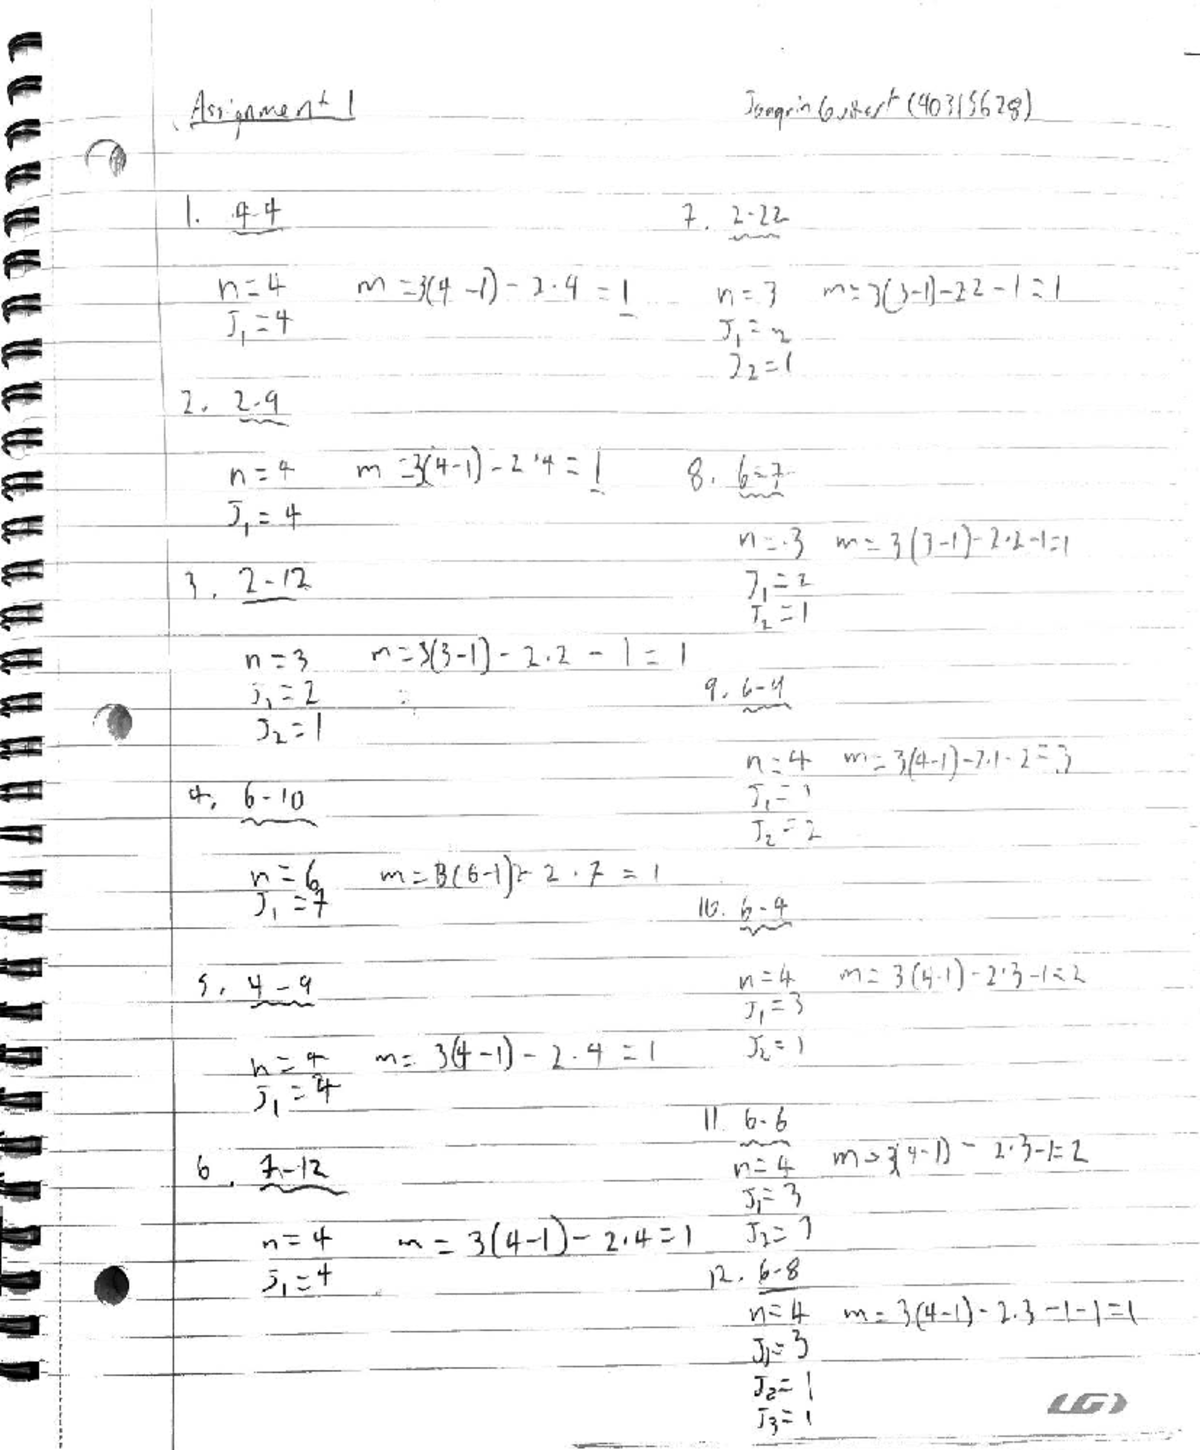 Assignment 1
Joaquin (40315628)
1. 4-4
n=4 m=3(4-1)-2·4=1
J₁=4
2. 2-9
n=4 m=3(4-1)-2·4=1
J₁=4
3. 2-12
n=3 m=3(3-1)-2·2-1=1
J₁=2
J₂=1
4. 6-10
n=6 m=3(6-1)-2·7=1
J₁=7
5. 4-9
n=4 m=3(4-1)-2·4=1
J₁=4
6. 7-12
n=4 m=3(4-1)-2·4=1
J₁=4
7. 2-22
n=3 m=3(3-1)-22-1=1
J₁=2
J₂=1
8. 6-7
n=3 m=3(3-1)-2·2-1=1
J₁=2
J₂=1
9. 6-4
n=4 m=3(4-1)-2·1-2=3
J₁=1
J₂=2
10. 6-9
n=4 m=3(4-1)-2·3-1=2
J₁=3
J₂=1
11. 6-6
n=4 m=3(4-1)-2·3-1=2
J₁=3
J₂=1
12. 6-8
n=4 m=3(4-1)-2·3-1-1=1
J₁=3
J₂=1
J₃=1